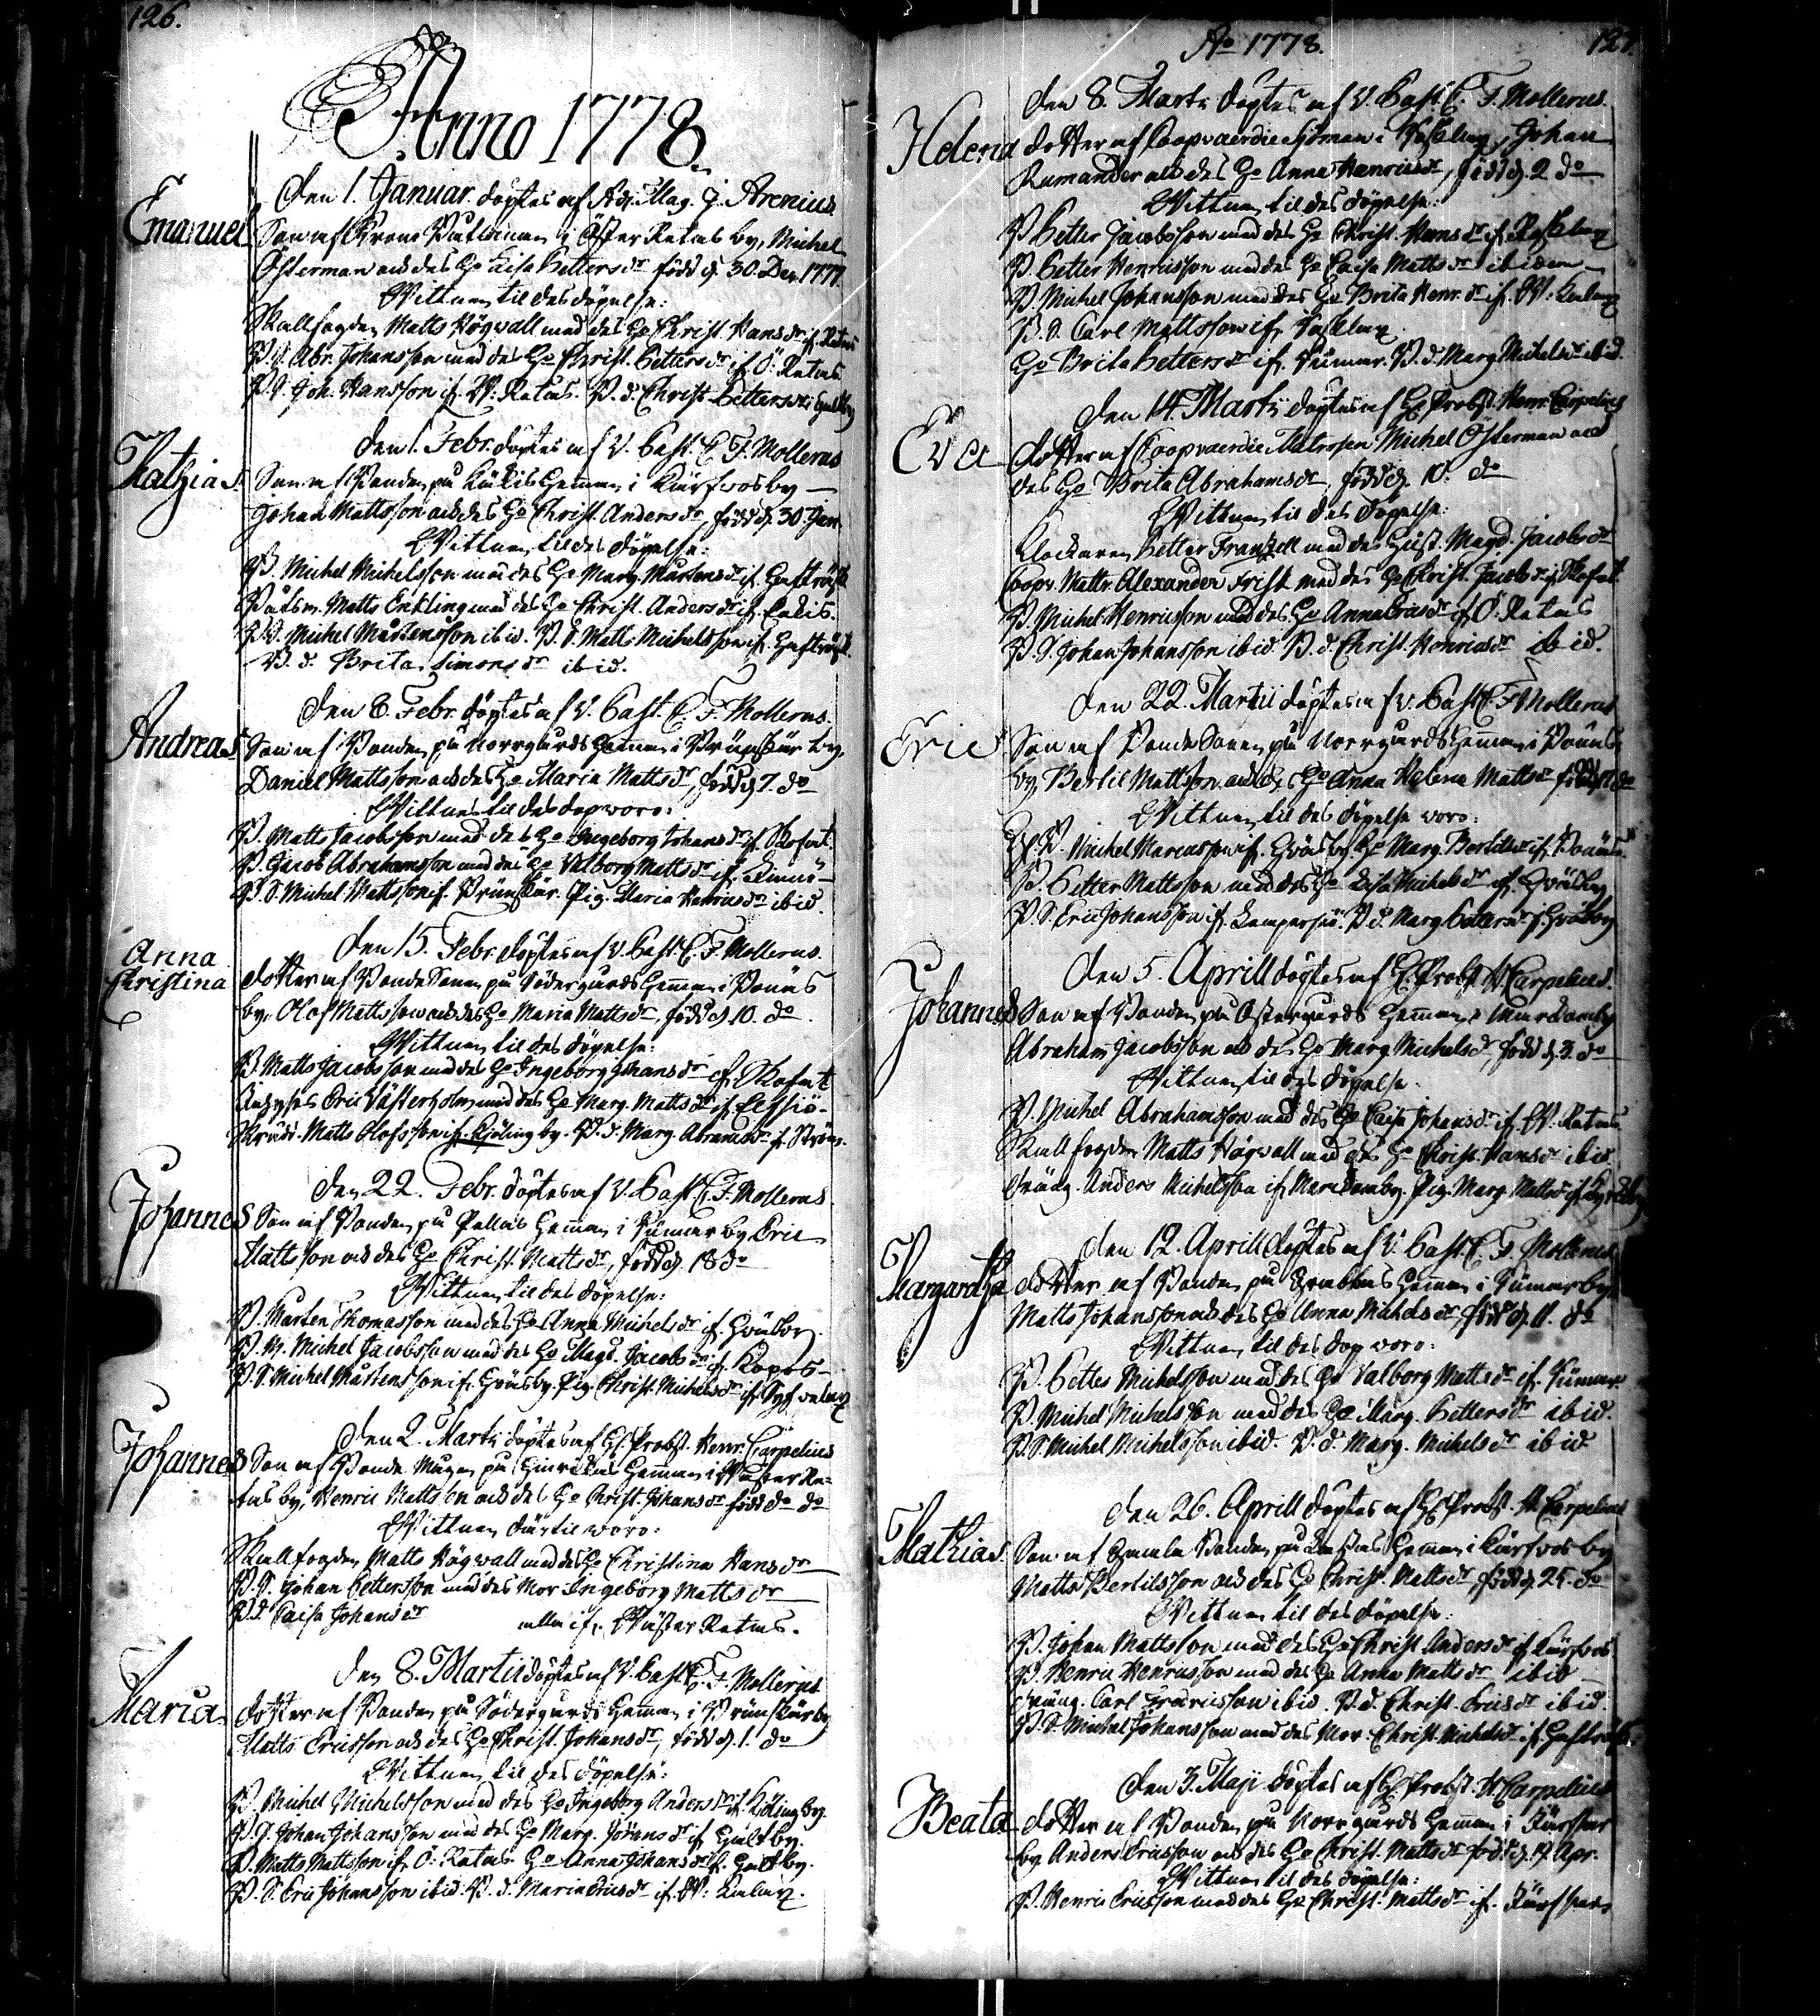 126.
Anno 1778.
Den 1. Januar. döptes af Adj. Mag. J. Arenius
Emanuel
Son af Krono i Öster Ratas by, Michel
Österman och des Ho Caisa Pettersdr född d. 30. Dec. 1777.
Wittnen til des döpelse:
Skallfogden Matts Högwall med des Ho Christ. Hansdr if. Ratas
Abr. Johansson med des Ho Christ. Pettersdr if. Ö: Ratas
Joh. Hansson if. W: Ratas. B. d. Christ. Pettersdr
Den 1. Febr. döptes af V. Past. C. F. Mollerus
Mathias
Son af Bonden på Hemman i Kärfwosby
Johan Mattsson och des Ho Christ. Andersdr, född d. 30 Jan.
Wittnen til des döpelse:
B. Michel Michelsson med des Ho Marg. Mårtensdr if.
Båtsm. Matts Enkling med des Ho Christ. Andersdr if.
Michel Mårtensson ibid. B. S. Matts Michelsson if.
B. d. Brita Simonsdr ibid.
Den 8. Febr. döptes af V. Past. C. F. Mollerus.
Andreas
Son af Bonden på Norrgårds Hemman i Bränskär by,
Daniel Mattsson och des Ho Maria Mattsdr, född d. 7. do
Wittnen til des dop woro:
B. Matts Jacobsson med des Ho Ingeborg Johansdr if. Skafnt
B. Jacob Abrahamsson med des Ho Valborg Mattsdr if.
B. S. Michel Mattsson if. Bränskär. Pig. Maria Henricsdr ibid.
Den 15. Febr. döptes af V. Past. C. F. Mollerus.
Anna
Christina
Dotter af Bonde Sonen på Södergårds Hemman i Bonäs
by, Olof Mattsson och des Ho Maria Mattsdr, född d. 10. do
Wittnen til des döpelse:
B. Matts Jacobsson med des Ho Ingeborg Johansdr if. Skafnt
Eric Västerholm med des Ho Marg. Mattsdr if.
Skrädd. Matts Olofsson if. Kjölingby. B. d. Marg. Abramsdr if.
Den 22. Febr. döptes af V. Past. C. F. Mollerus.
Johannes
Son af Bonden på Hemman i by Eric
Mattsson och des Ho Christ. Mattsdr, född d. 18 do
Wittnen til des döpelse:
B. Mårten Thomasson med des Ho Anna Michelsdr if. Gräsby.
Michel Jacobsson med des Ho Magd. Jacobsdr if.
B. S. Michel Mårtensson if. Gräsby. Pig. Christ. Michelsdr if.
Den 2. Martii döptes af H. Probst. Henr. Carpelius
Johannes
Son af Bonde Mågen på Hemman i Wäster Ra-
tas by, Henric Mattsson och des Ho Christ. Johansdr född do do
Wittnen därtil woro:
Skallfogden Matts Högwall med des Ho Christina Hansdr
B. S. Johan Pettersson med des Mor Ingeborg Mattsdr
B. d. Caisa Johansdr alla if. Wäster Ratas.
Den 8. Martii döptes af V. Past. C. F. Mollerus
Maria
Dotter af Bonden på Södergårds Hemman i Bränskär by
Matts Ericsson och des Ho Christ. Johansdr, född d. 1. do
Wittnen til des döpelse:
B. Michel Michelsson med des Ho Ingeborg Andersdr if. Kölingby.
Johan Johansson med des Ho Marg. Göransdr if. Gultby.
B. Matts Mattsson if. Ö: Ratas. Ho Anna Johansdr if. Gultby.
B. S. Eric Johansson ibid. B. d. Maria Ericsdr if. W:
Ao 1778.
127.
Den 8. Martii döptes af V. Past. C. F. Mollerus.
Helena
Dotter af Coopvaerdie Sjöman i Johan
Rumander och des Ho Anna Henricsdr, född d. 2 do
Wittnen til des döpelse:
B. Petter Jacobsson med des Ho Christ. Hansdr if.
B. Petter Henricsson med des Ho Caisa Mattsdr ibidem
B. Michel Johansson med des Ho Brita Henr.dr if. W:
B. S. Carl Mattsson if.
Ho Brita Pettersdr if. B. d. Marg. Michelsdr ibid.
Den 14. Martii döptes af H. Probst. Henr. Carpelius
Eva
Dotter af Coopvaerdie Matrosen Michel Österman och
des Ho Brita Abrahamsdr, född d. 10. do
Wittnen til des döpelse:
Klockaren Petter Frantzell med des Hust. Magd. Jacobsdr
Coopv. Matr. Alexander Frisk med des Ho Christ. Jacobsdr if. Skafnt.
B. Michel Henricsson med des Ho Anna Ersdr if. Ö: Ratas
B. S. Johan Johansson ibid. B. d. Christ. Henricsdr ibid.
Den 22. Martii döptes af V. Past. C. F. Mollerus
Eric
Son af Bonde Sonen på Norrgårds Hemman i Bonäs
by, Bertil Mattsson och des Ho Anna Helena Mattsdr född
Wittnen til des döpelse woro:
Michel Marcusson if. Gräsby. Ho Marg. Bertilsdr if. Bonäs.
B. Petter Mattsson med des Ho Lisa Michelsdr if. Gräsby
B. S. Eric Johansson if. B. d. Marg. Pettersdr if. Gräsby
Den 5. Aprill döptes af H. Probst. H. Carpelius.
Johannes
Son af Bonden på Östergårds Hemman i
Abraham Jacobsson och des Ho Marg. Michelsdr, född d. 3. do
Wittnen til des döpelse:
B. Michel Abrahamsson med des Ho Caisa Johansdr if. W. Ratas
Skallfogden Matts Högwall med des Ho Christ. Hansdr ibid
Dräng. Anders Michelsson if. Pig. Marg. Mattsdr if.
Den 12. Aprill döptes af V. Past. C. F. Mollerus
Margaretha
Dotter af Bonden på Hemman i by
Matts Johansson och des Ho Anna Michelsdr, född d. 11. do
Wittnen til des dop woro:
B. Petter Michelsson med des Ho Valborg Mattsdr if.
B. Michel Michelsson med des Ho Marg. Pettersdr ibid.
B. S. Michel Michelsson ibid. B. d. Marg. Michelsdr ibid
Den 26. Aprill döptes af H. Probst. H. Carpelius
Mathias
Son af Gamla Bonden på Hemman i Kärfwosby
Matts Bertilsson och des Ho Christ. Mattsdr, född d. 25. do
Wittnen til des döpelse:
B. Johan Mattsson med des Ho Christ. Andersdr if. Kärfwos
B. Henric Henricsson med des Ho Anna Mattsdr ibid
Dräng. Carl Fredricsson ibid. B. d. Christ. Ericsdr ibid.
B. S. Michel Johansson med des Mor. Christ. Michelsdr if.
Den 3. Maji döptes af H. Probst. H. Carpelius
Beata
Dotter af Bonden på Norrgårds Hemman i
by Anders Ericsson och des Ho Christ. Mattsdr född d. Apr.
Wittnen til des döpelse:
B. Henric Ericsson med des Ho Christ. Mattsdr if.